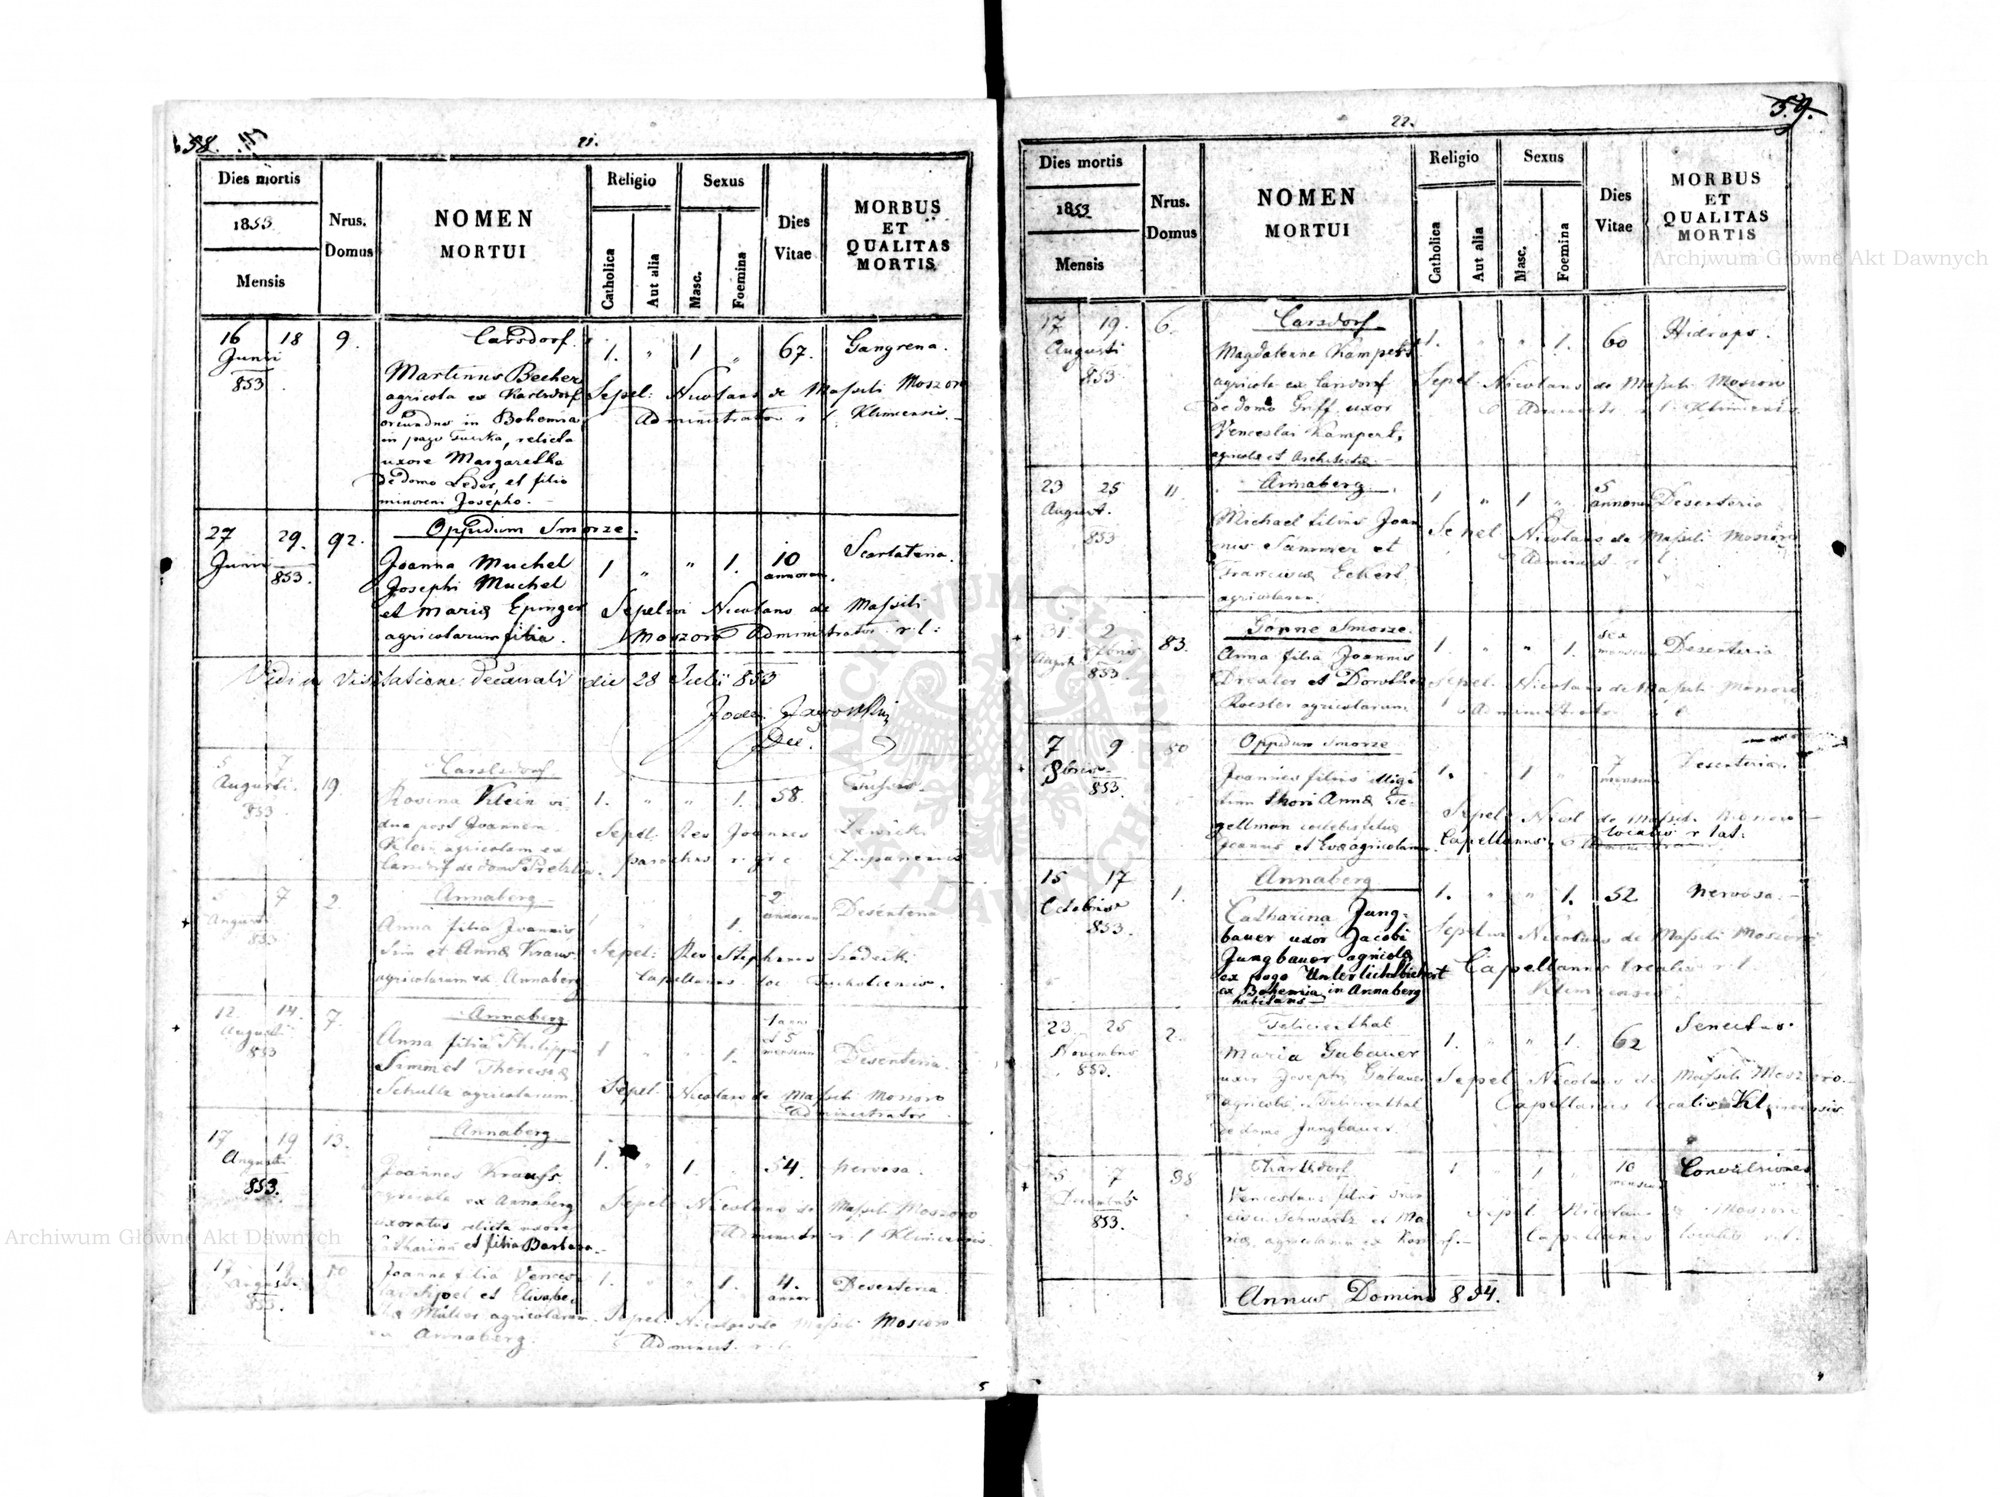 58.
21.
Dies mortis
1853
Mensis
Nrus.
Domus
NOMEN
MORTUI
Religio
Catholica
Aut alia
Sexus
Masc.
Foemina
Dies
Vitae
MORBUS
ET
QUALITAS
MORTIS
16 18 9. Carsdorf. 1. " 1 " 67. Gangrena.
Junii
853
Martinus Becher
agricola ex Karlsdorf Sepel: Nicolaus de Massili Moszoro
oriundus in Bohemia Administrator r. l. Klimiensis.
in pago relicta
uxore Margaretha
de domo Leder, et filio
minoreni Josepho.
27 29. 92. Oppidum Smorze.
Junii 853.
Joanna Muchel 1 " " 1. 10 annorum. Scarlatina.
Josephi Muchel
et Mariæ Epinger Sepelivi Nicolaus de Massili
agricolarum filia. Moszoro Administrator r. l:
Vidi in Visitatione Decanali die 28 Julii 853
Dec.
5 7 19. Carlsdorf
Augusti. 853
Rosina Klein vi- 1. " " 1. 58. Tussis.
dua post Joannem Sepel: Rev Joannes
Klein agricolam ex parochus r. gr. c.
Carsdorf de domo
5 7 2. Annaberg.
Augusti 853
Anna filia Joannis 1. 2 annorum Desenteria
et Annæ Kraus Sepel: Rev Stephanus
agricolarum ex Annaberg Capellanus loc. Tucholcensis.
12 14. 7. Annaberg
Augusti 853
Anna filia Philippi 1 " " 1. 1 anni et 5 mensium Desenteria.
Simon et Theresiæ
Schultz agricolarum. Sepel: Nicolaus de Massili Moszoro
Administrator
17 19 13. Annaberg
Augusti 853.
Joannes Krauss. 1. " 1. 54. Nervosa.
agricola ex Annaberg
uxoratus relicta uxore Sepel: Nicolaus de Massili Moszoro
Catharina et filia Barbara. Administr r. l Klimiensis.
17 19 10
Augusti. 853.
Joanna filia Vences- 1. " " 1. 4. annor Desenteria
lai et Elisabe-
tha Müller agricolarum Sepel: Nicolaus de Massili Moszoro
ex Annaberg. Administ. r. l.
5
59.
22.
Dies mortis
1853
Mensis
Nrus.
Domus
NOMEN
MORTUI
Religio
Catholica
Aut alia
Sexus
Masc.
Foemina
Dies
Vitae
MORBUS
ET
QUALITAS
MORTIS
17 19. 6. Carsdorf
Augusti 853
Magdalena Kampert 1. " " 1. 60 Hidrops.
agricola ex Carsdorf Sepel Nicolaus de Massili Moszoro
de domo Griff uxor Administr. r. l. Klimiensis.
Venceslai Kampert,
agricolæ et Architectæ.
23 25 11. Annaberg.
August. 853
Michael filius Joan- 1 " 1 " 5 annorum Desenteria
nis Sammer et Sepel Nicolaus de Massili Moszoro
Franciscæ Eckert Administ. r. l.
agricolarum.
31. 2 83. Górne Smorze.
August 7bris 853.
Anna filia Joannis 1. " " 1. sex mensium Desenteria
Drexler et Dorotheæ Sepel. Nicolaus de Massili Moszoro
Roester agricolarum Administrator r. l
7 9 80 Oppidum Smorze
8bris. 853.
Joannes filius 1. 1 " 7 mensium Desenteria.
Annæ
gellman cœlebis filiæ Sepel Nicol de Massili Moszoro
Joannis et Evæ agricolarum. Capellanus localis r. lat.
15 17 1. Annaberg
Octobris 853.
Catharina Jung- 1. " " 1. 52 Nervosa.
bauer uxor Jacobi Sepelivi Nicolaus de Massili Moszoro
Jungbauer agricolæ
ex pago Unterlichtbichert Capellanus localis r. l
ex Bohemia in Annaberg Klimiensis
habitans
23 25 2. Felicienthal
Novembris 853.
Maria Gabauer 1. " " 1. 62 Senectus.
uxor Josephi Gabauer Sepel Nicolaus de Massili Moszoro
agricolæ in Felicienthal Capellanus localis Klimiensis.
de domo Jungbauer.
5 7 98 Karlsdorf
Decembris 853.
Venceslaus filius Fran- 1 1 10 mensium Convulsiones
cisci Schwartz et Ma- Sepel Nicolaus Moszoro
riæ, agricolarum ex Capellanus localis r. l.
Annus Domini 854.
Archiwum Główne Akt Dawnych
Archiwum Główne Akt Dawnych
ARCHIWUM GŁÓWNE AKT DAWNYCH